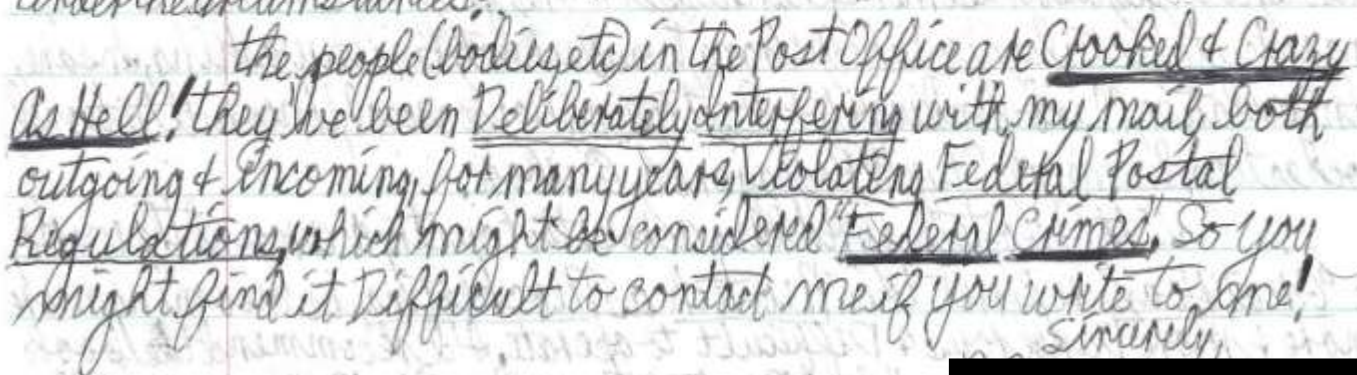 under the circumstances.
the people (bodies, etc) in the Post Office are Crooked & Crazy
As Hell! they've been Deliberately Interfering with my mail, both
outgoing & incoming, for many years, Violating Federal Postal
Regulations, which might be considered "Federal Crimes". So you
might find it Difficult to contact me if you write to me!
Sincerely,